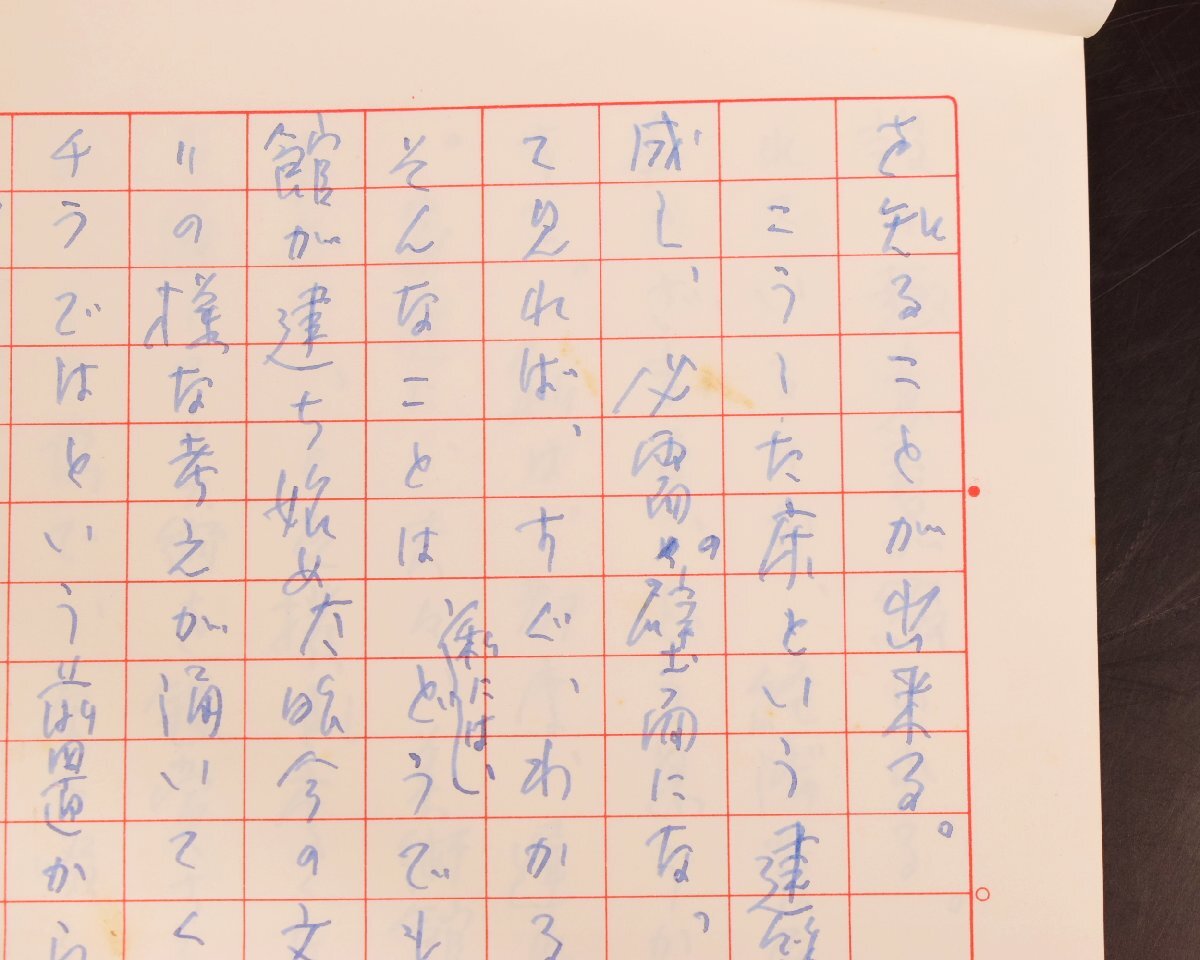 を知ることが出来る。
こうした床という建築
成し、必の壁面にな
て見れば、すぐ、わかる
そんなことはどうでも
館が建ち始め昨今の文
〃の様な考えが涌いてく
チうではというから